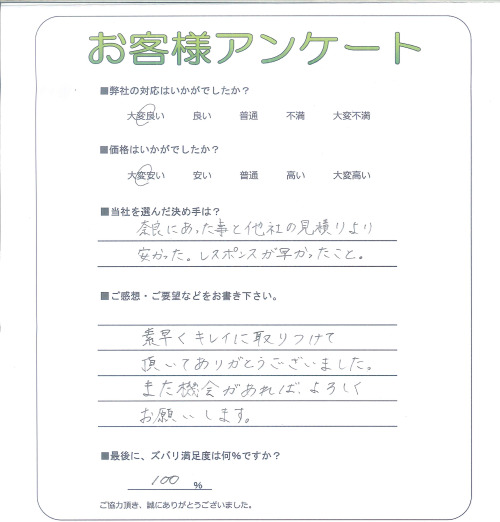 お客様アンケート
■弊社の対応はいかがでしたか？
大変良い 良い 普通 不満 大変不満
■価格はいかがでしたか？
大変安い 安い 普通 高い 大変高い
■当社を選んだ決め手は？
奈良にあった事と他社の見積りより
安かった。レスポンスが早かったこと。
■ご感想・ご要望などをお書き下さい。
素早くキレイに取りつけて
頂いてありがとうございました。
また機会があれば、よろしく
お願いします。
■最後に、ズバリ満足度は何％ですか？
100 ％
ご協力頂き、誠にありがとうございました。